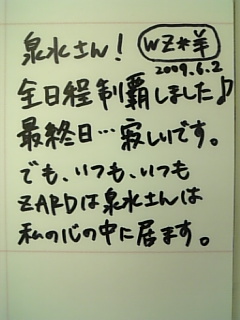 泉水さん！ WZ*羊
2009.6.2
全日程制覇しました♪
最終日…寂しいです。
でも、いつも、いつも
ZARDは泉水さんは
私の心の中に居ます。